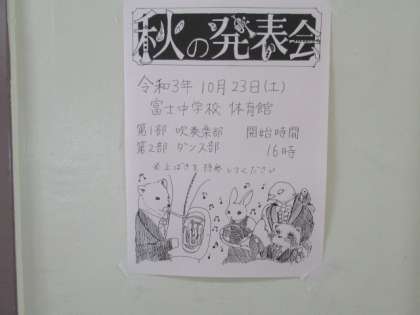 秋の発表会
令和3年 10月23日(土)
富士中学校 体育館
第1部 吹奏楽部 開始時間
第2部 ダンス部 16時
※上ばきを持参してください